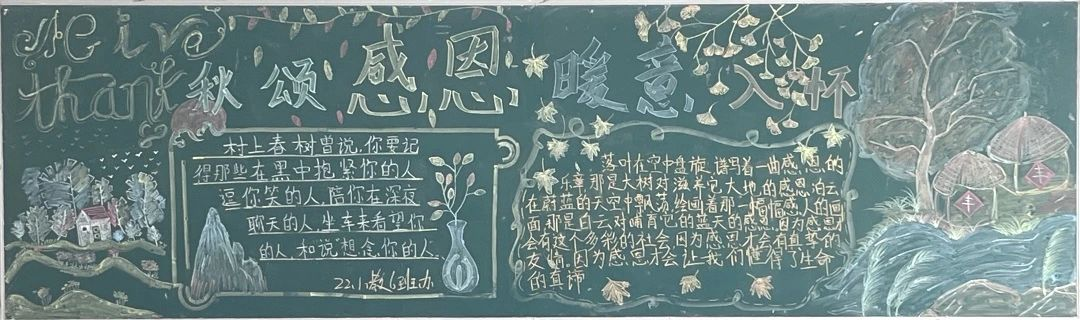 Give
thank
秋颂感恩 暖意入怀
村上春树曾说,你要记
得那些在黑中抱紧你的人
逗你笑的人,陪你在深夜
聊天的人,坐车来看望你
的人,和说"想念"你的人.
落叶在空中盘旋,谱写着一曲感恩的
乐章,那是大树对滋养它大地的感恩,白云
在蔚蓝的天空中飘荡,绘画着那一幅幅感人的画
面,那是白云对哺育它的蓝天的感恩.因为感恩才
会有这个多彩的社会,因为感恩才会有真挚的
友情.因为感恩才会让我们懂得了生命
的真谛
丰
丰